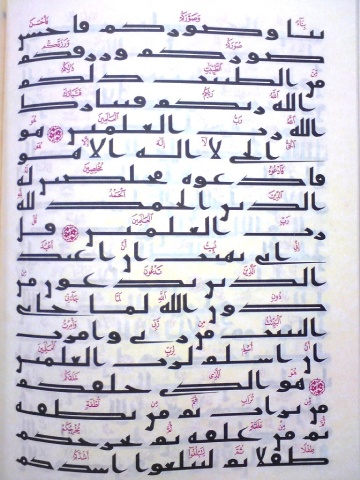 بنا وصوركم فاحسن
صوركم ورزقكم
من الطيبت ذلكم
الله ربكم فتبارك
الله رب العلمين هو
الحي لا اله الا هو
فادعوه مخلصين له
الدين الحمد لله
رب العلمين قل
اني نهيت ان اعبد
الذين تدعون من
دون الله لما جاني
البينت من ربي وامرت
ان اسلم لرب العلمين
هو الذي خلقكم
من تراب ثم من نطفه
ثم من علقه ثم يخرجكم
طفلا ثم لتبلغوا اشدكم